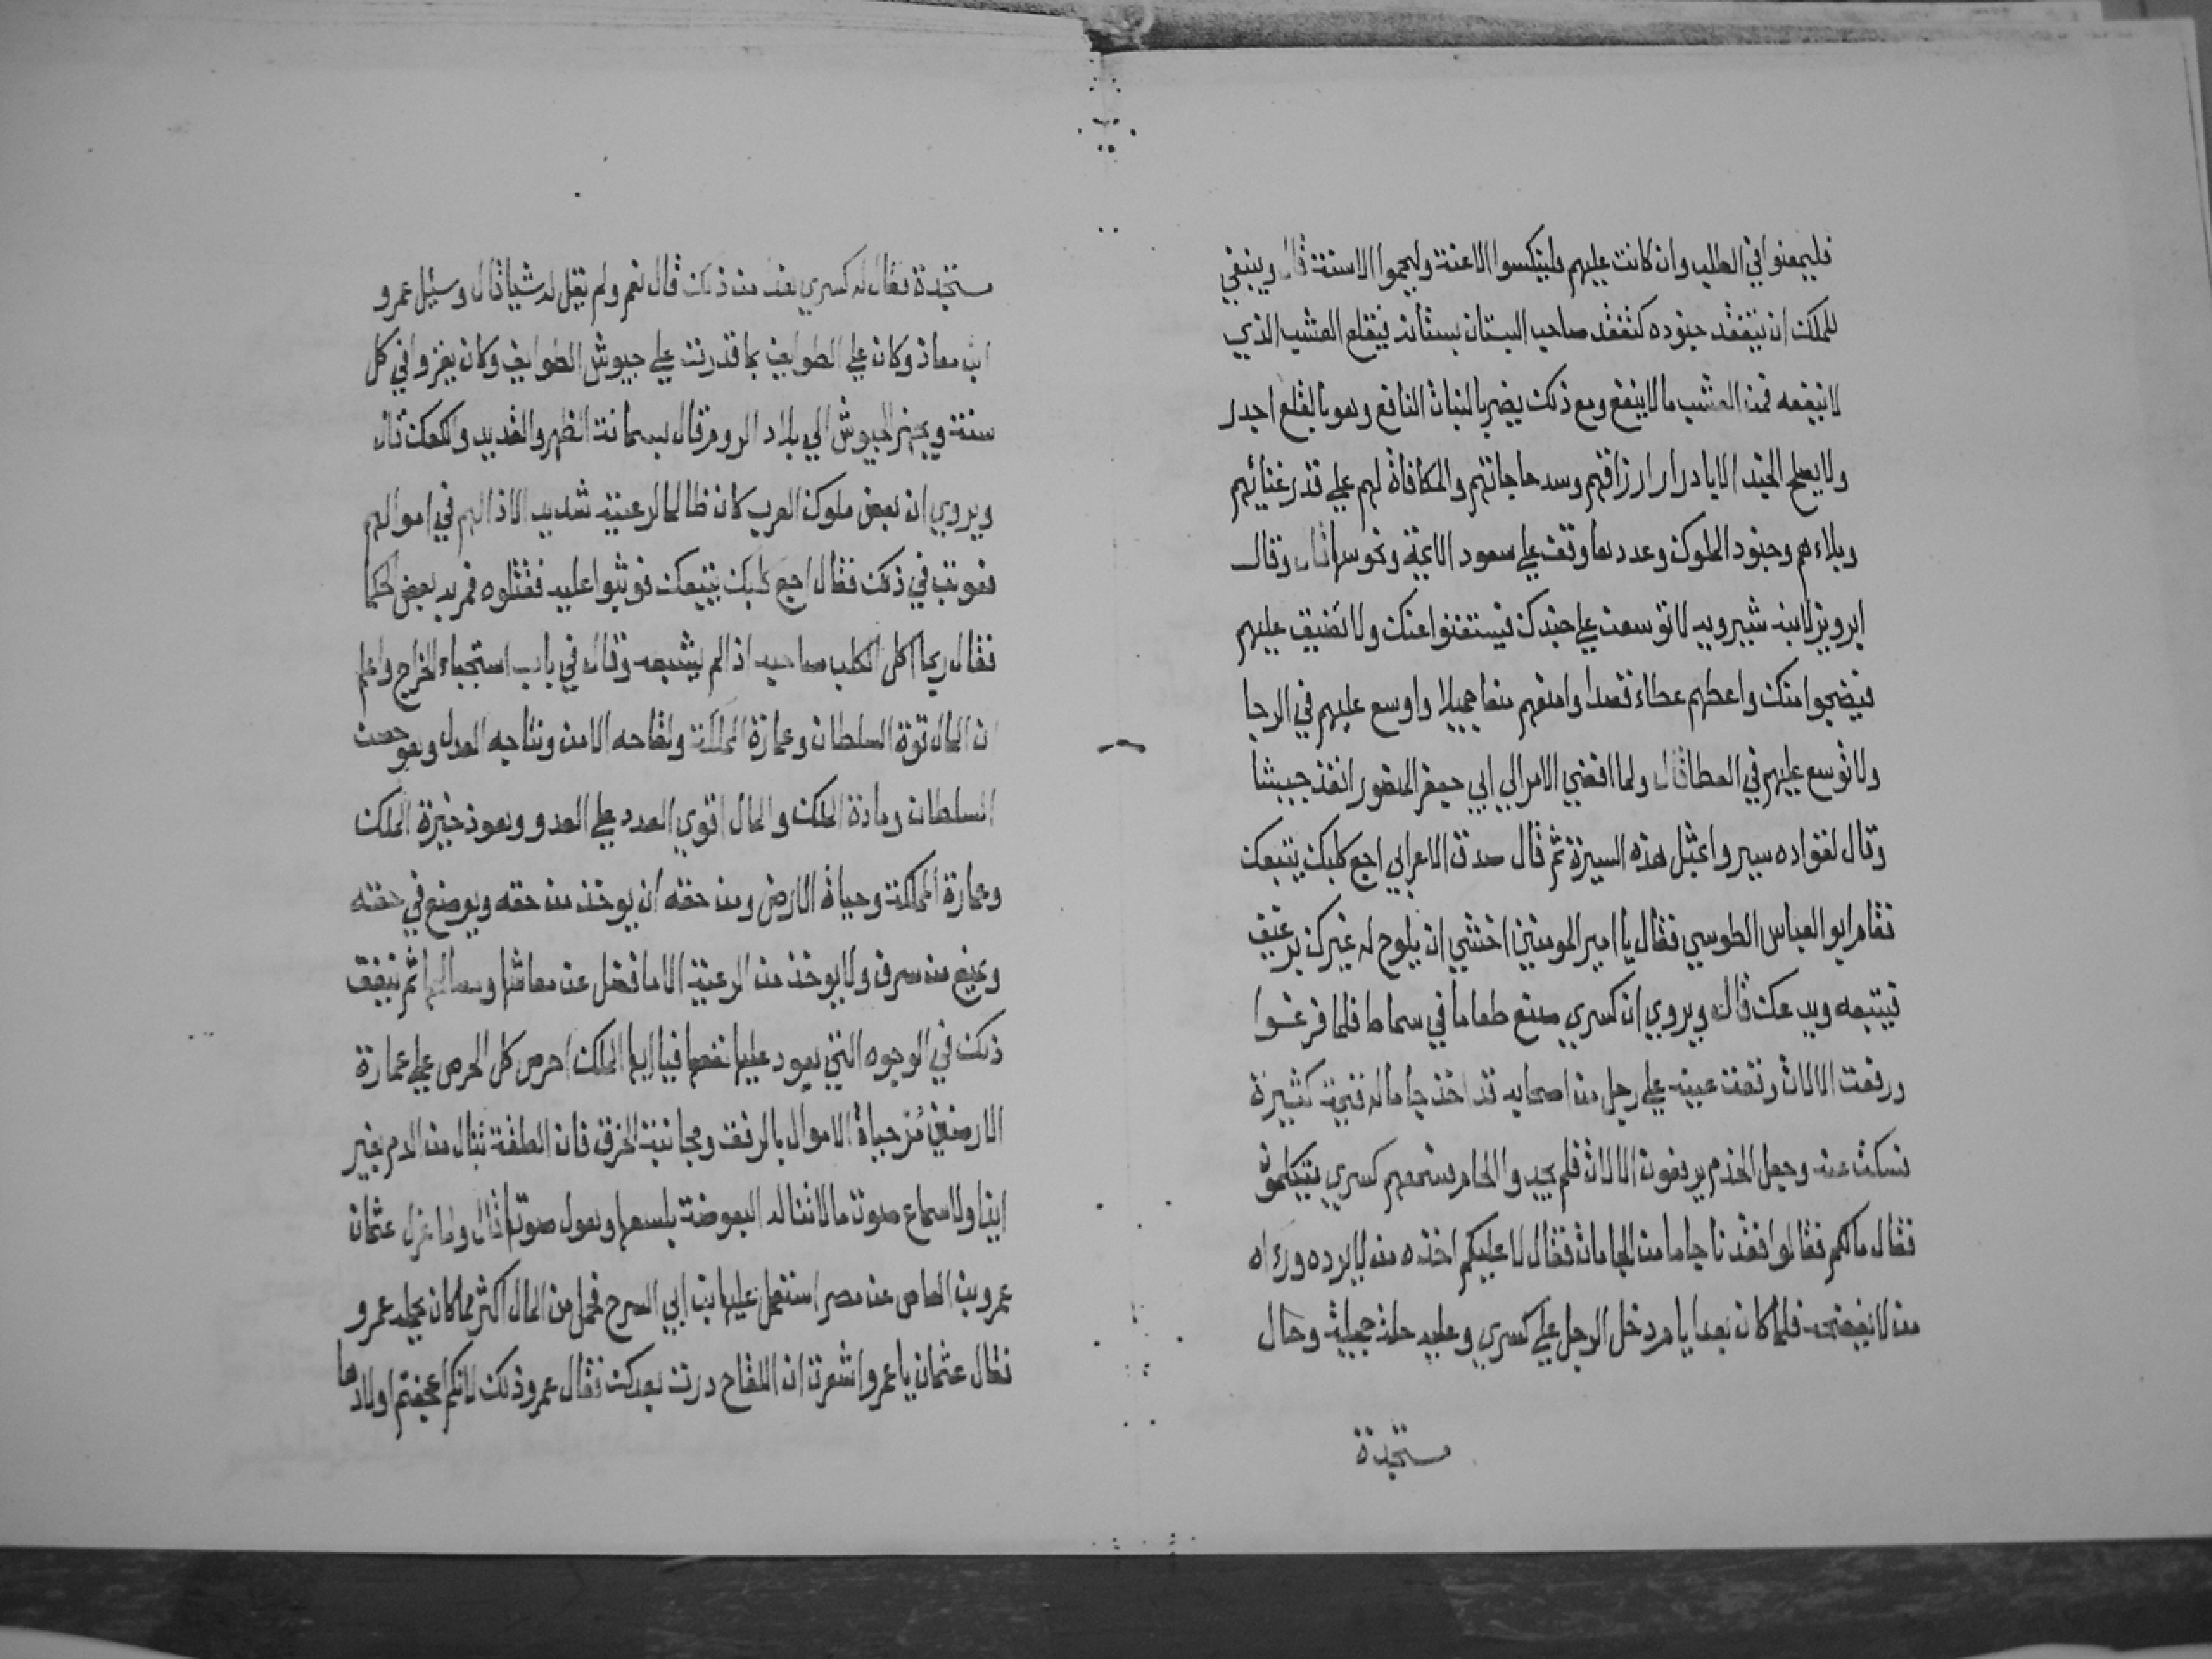 فليمعنوا في الطلب وان كانت عليهم فلينكسوا الاعنة وليحموا الاسنة قال وينبغي
للملك ان يتفقد جنوده كتفقد صاحب البستان بستانه فيقلع العشب الذي
لا ينفعه فمن العشب ما لا ينفع ومع ذلك يضر بالنبات النافع وهو بالقلع اجدر
ولا يصلح الجند الا بادرار ارزاقهم وسد حاجاتهم والمكافاة لهم على قدر غنائهم
وبلاءهم وجنود الملوك وعددها وقف على سعود الائمة ونحوسها قال وقال
ابرويز لابنه شيرويه لا توسعن على جندك فيستغنوا عنك ولا تضيق عليهم
فيضجوا منك واعطهم عطاء قصدا وامنعهم منعا جميلا واوسع عليهم في الرجا
ولا توسع عليهم في العطا قال ولما افضي الامر الي ابي جعفر المنصور انفذ جيشا
وقال لقواده سيروا بمثل هذه السيرة ثم قال صدق الاعرابي اجع كلبك يتبعك
فقام ابو العباس الطوسي فقال يا امير المومنين اخشي ان يلوح له غيرك برغيف
فيتبعه ويدعك قال ويروي ان كسري صنع طعاما في سماط فلما فرغوا
ورفعت الالات وقعت عينه على رجل من اصحابه قد اخذ جاما له قيمة كثيرة
فسكت عنه وجعل الخدم يرفعون الالات فلم يجدوا الجام فسمعهم كسري يتكلمون
فقال مالكم فقالوا فقدنا جاما من الجامات فقال لا عليكم اخذه من لا يرده وراه
من لا يفضحه فلما كان بعد ايام دخل الرجل على كسري وعليه حلة جميلة وحال
مستجدة
مستجدة فقال له كسري هذا من ذلك قال نعم ولم يقل له شيا قال وسئل عمرو
ابن معاذ وكان على الطوايف بما قدرت على جيوش الطوايف وكان يغزوا في كل
سنة ويجهز الجيوش الي بلاد الروم قال بسمانة الظهر والقديد والكعك قال
ويروي ان بعض ملوك العرب كان ظالما لرعيته شديد الاذا لهم في اموالهم
فعوتب في ذلك فقال اجع كلبك يتبعك فوثبوا عليه فقتلوه فمر به بعض الحكما
فقال ربما اكل الكلب صاحبه اذا لم يشبعه وقال في باب استجباء الخراج واعلم
ان المال قوة السلطان وعمارة المملكة ولقاحه الامن ونتاجه العدل وهو حصن
السلطان ومادة الملك والمال اقوي العدد على العدو وهو ذخيرة الملك
وعمارة المملكة وحياة الارض ومن حقه ان يوخذ من حقه ويوضع في حقه
ويمنع من سرف ولا يوخذ من الرعية الا ما فضل عن معاشها ومصالحها ثم ينفق
ذلك في الوجوه التي يعود عليها نفعها فيا ايها الملك احرص كل الحرص على عمارة
الارضين مر جباة الاموال بالرفق ومجانبة الخرق فان العلقة تنال من الدم بغير
ايذا ولا سماع صوت ما لا تناله البعوضة بلسعها وهول صوتها قال ولما عزل عثمان
عمرو بن العاص عن مصر استعمل عليها بن ابي السرح فحمل من المال اكثر مما كان يحمله عمرو
فقال عثمان يا عمرو اشعرت ان اللقاح درت بعدك فقال عمرو ذلك لانكم اعجفتم اولادها